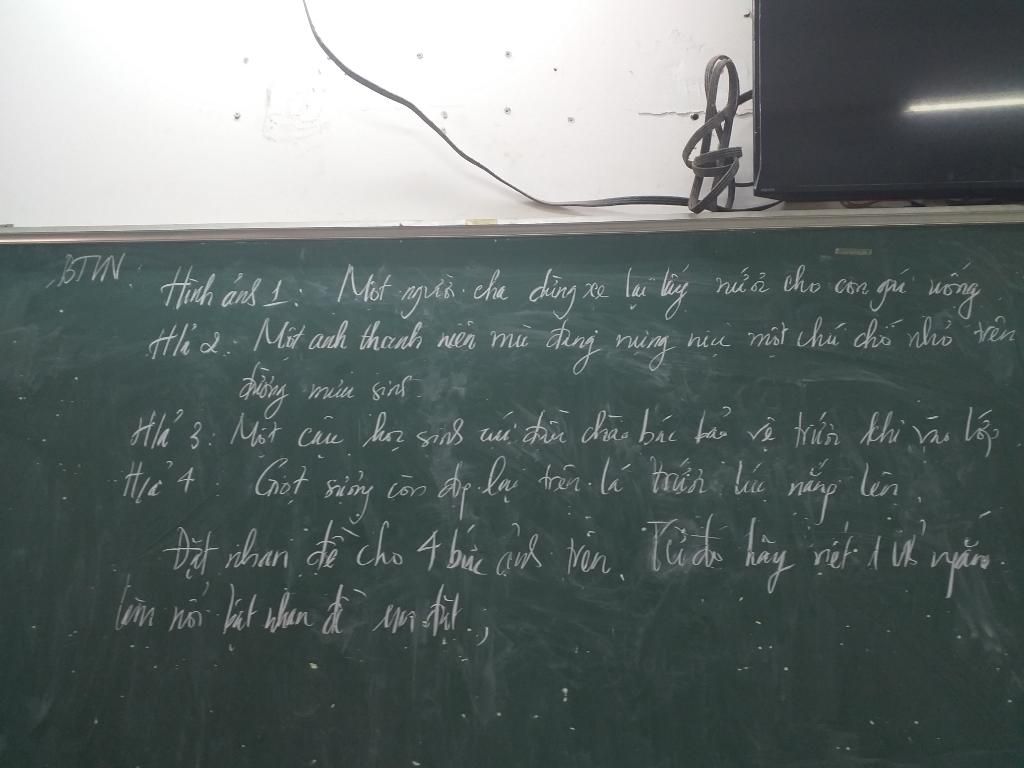 BTVN: Hình ảnh 1: Một người cha dừng xe lại lấy nước cho con gái uống
HẢ 2: Một anh thanh niên mù đang nựng nịu một chú chó nhỏ trên
đường mưu sinh.
HẢ 3: Một cậu học sinh cúi đầu chào bác bảo vệ trước khi vào lớp
HẢ 4: Giọt sương còn đọng lại trên lá trước lúc nắng lên.
Đặt nhan đề cho 4 bức ảnh trên. Từ đó hãy viết 1 VB ngắn
làm nổi bật nhan đề em đặt.